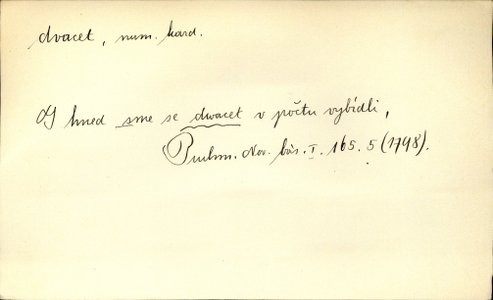 dvacet, num. kard.
I hned sme se dwacet v počtu vybídli,
Puchm. Nov. bás. I. 165. 5 (1798).